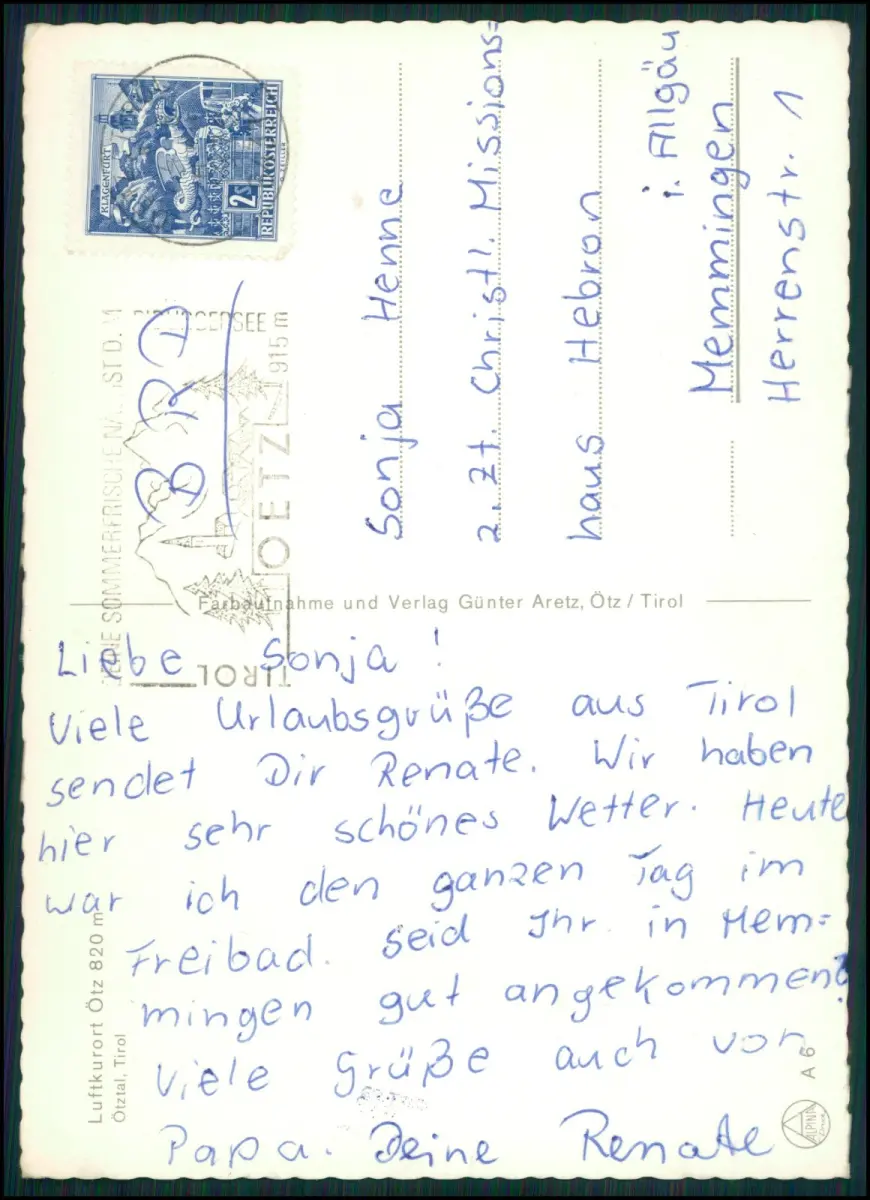 Liebe Sonja!
Viele Urlaubsgrüße aus Tirol
sendet Dir Renate. Wir haben
hier sehr schönes Wetter. Heute
war ich den ganzen Tag im
Freibad. Seid Ihr in Mem=
mingen gut angekommen?
Viele Grüße auch von
Papa. Deine Renate
Sonja Henne
z. Zt. Christl. Missions=
haus Hebron
i. Allgäu
Memmingen
Herrenstr. 1
BRD
KLAGENFURT
2S
REPUBLIK ÖSTERREICH
SOMMERFRISCHE
915 m
OETZ
TIROL
Farbaufnahme und Verlag Günter Aretz, Ötz / Tirol
Luftkurort Ötz 820 m
Ötztal, Tirol
A 6
ALPINA